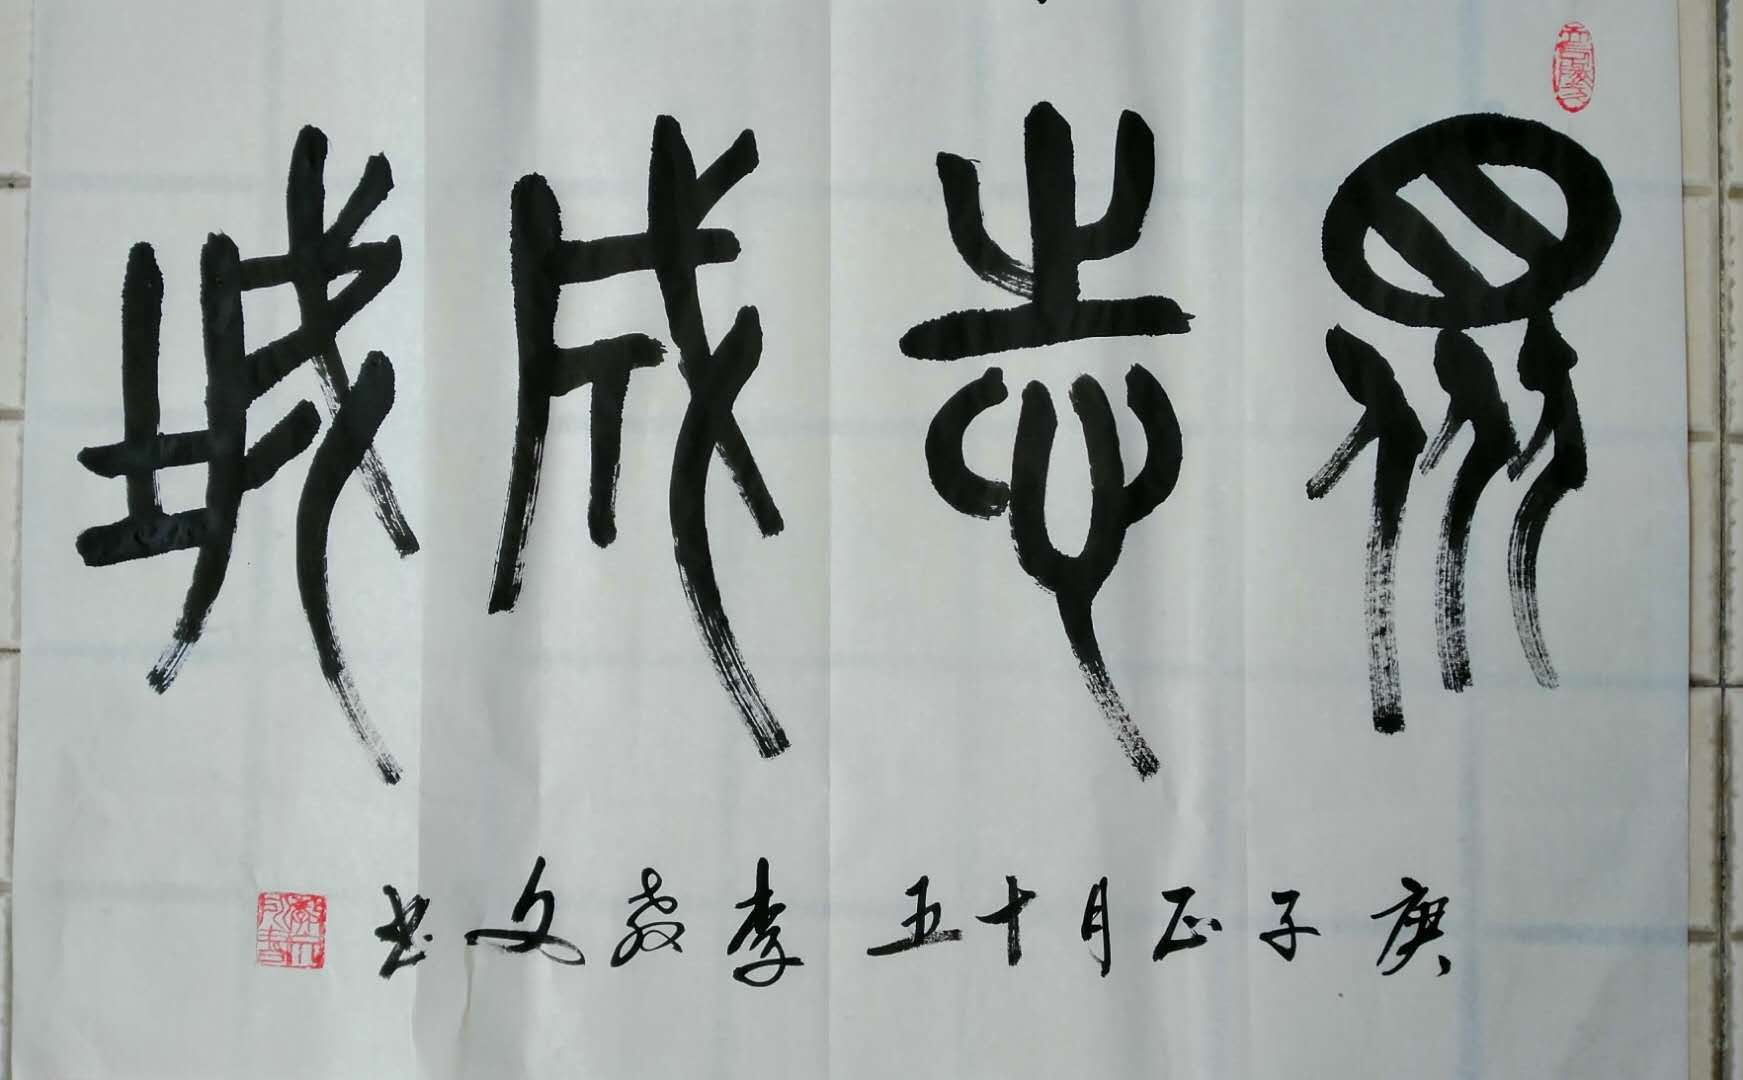 眾志成城
庚子正月十五李敬文书